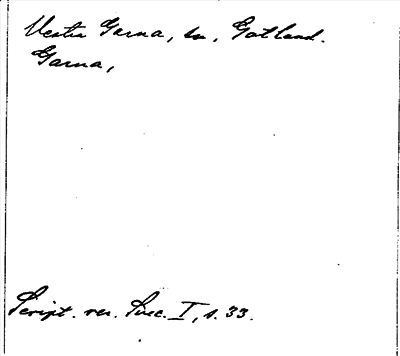 Vester Garna, sn, Gotland.
Garna,
Script. rer. Svec. I, s. 33.